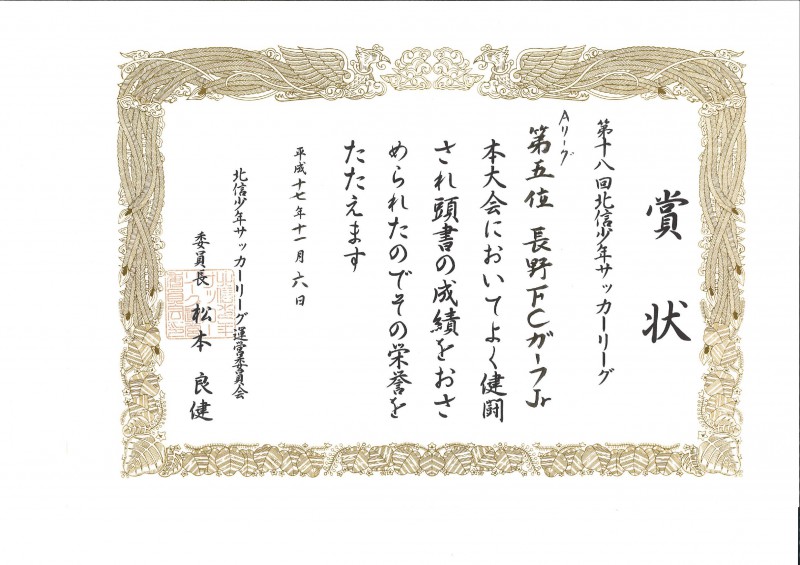 賞状
第十八回北信少年サッカーリーグ
Aリーグ
第五位 長野FCガーフJr
本大会においてよく健闘
され頭書の成績をおさ
められたのでその栄誉を
たたえます
平成十七年十一月六日
北信少年サッカーリーグ運営委員会
委員長 松本良健